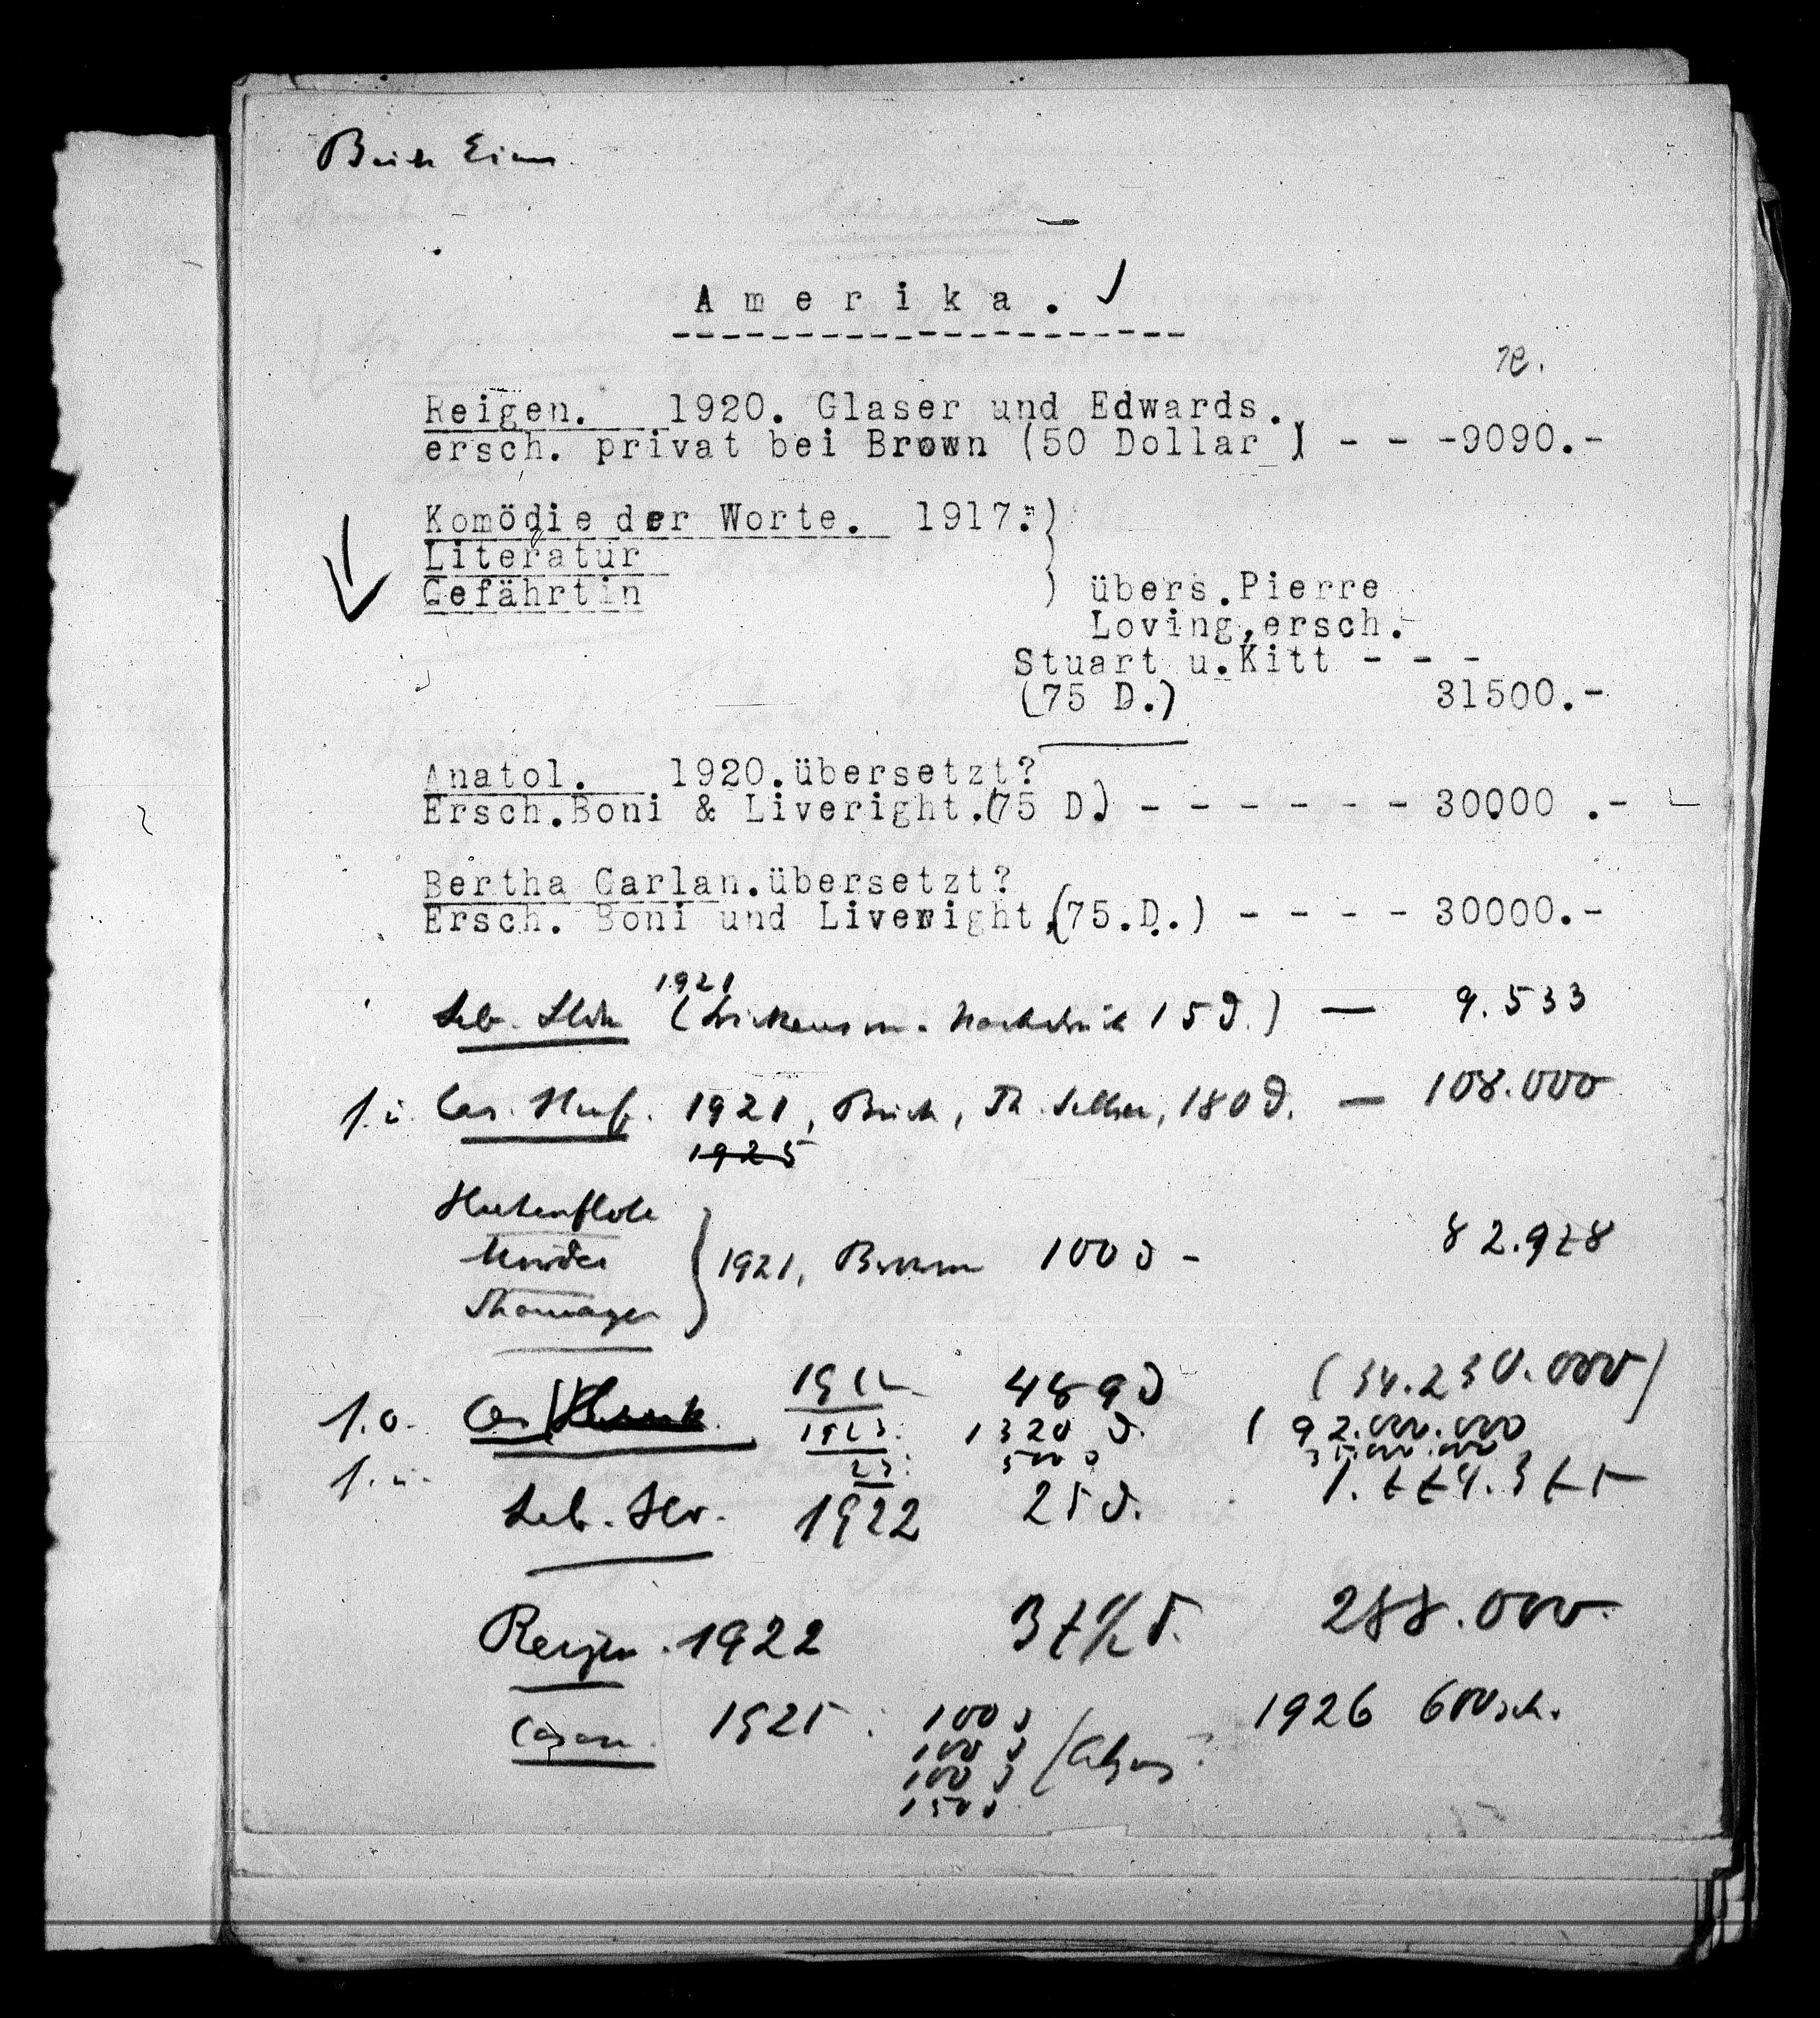 Buch Einn
Amerika.
Reigen. 1920. Glaser und Edwards.
ersch. privat bei Brown (50 Dollar ) - - -9090.-
Komödie der Worte. 1917. )
Literatur )
Gefährtin ) übers.Pierre
Loving,ersch.
Stuart u.Kitt - - -
(75 D.) 31500.-
Anatol. 1920.übersetzt?
Ersch.Boni & Liveright.(75 D.) - - - - - - 30000 .-
Bertha Garlan.übersetzt?
Ersch. Boni und Liveright.(75.D.) - - - - 30000.-
1921
Leb. Std. ( Nachdruck 15 D.) — 9.533
Cas. Heimf. 1921, Buch, Th. Seltzer, 180 D. — 108.000
1925
Hirtenflöte
Mörder
1921, 100 D - 82.978
Cas 1922 489 D (34.230.000)
1923. 1320 D. ( 92.000.000
23: 500 D 35.000.000
Leb. St. 1922 25 D. 1.774.375
Reigen. 1922 37½ D. 288.000
Casan. 1925: 100 D 1926 600 sch.
100 D
100 D
150 D